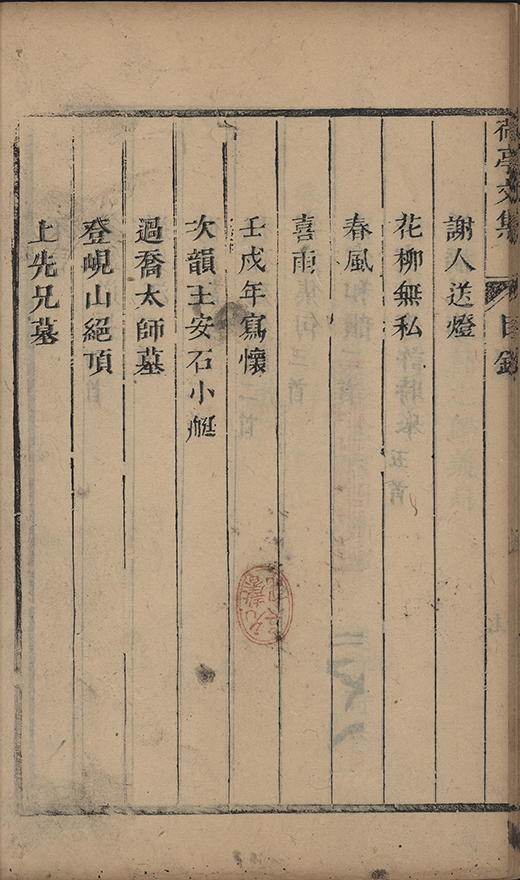 荷亭文集 目錄
謝人送燈
花柳無私
春風
喜雨
壬戌年寫懷
次韻王安石小艇
過喬太師墓
登峴山絕頂
上先兄墓